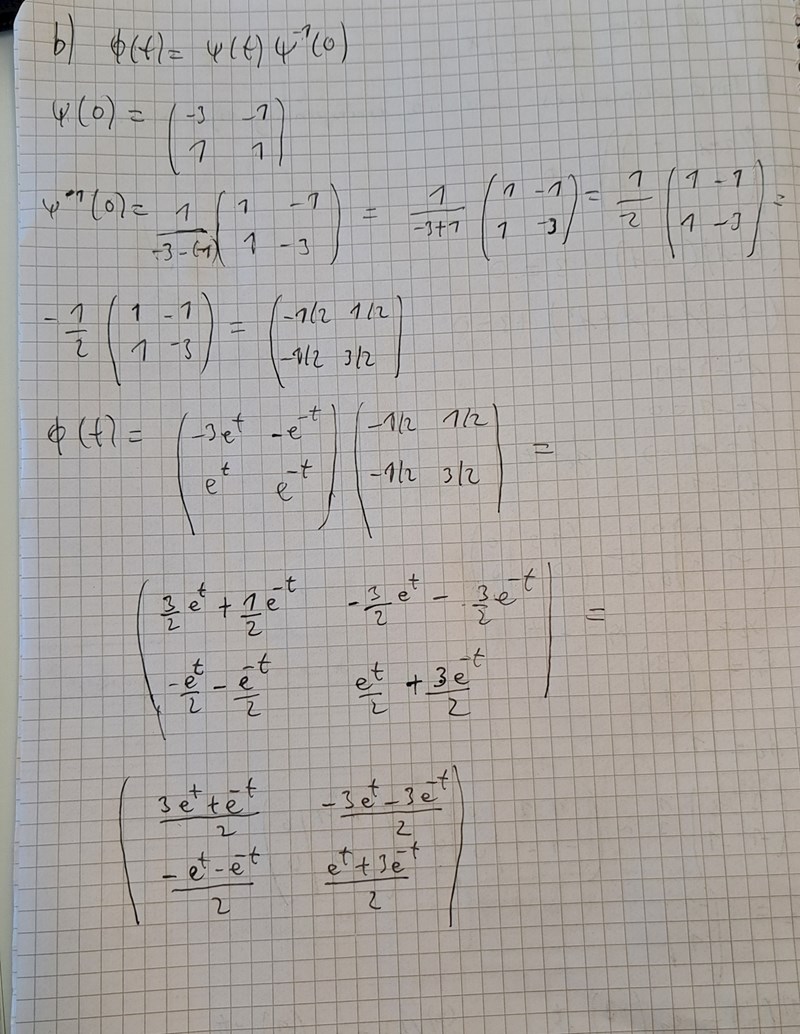 b) ϕ(t) = ψ(t) ψ⁻¹(0)
ψ(0) = ( -3 -1 ; 1 1 )
ψ⁻¹(0) = 1/(-3-(-1)) ( 1 -1 ; 1 -3 ) = 1/(-3+1) ( 1 -1 ; 1 -3 ) = 1/2 ( 1 -1 ; 1 -3 ) =
-1/2 ( 1 -1 ; 1 -3 ) = ( -1/2 1/2 ; -1/2 3/2 )
ϕ(t) = ( -3e^t -e^-t ; e^t e^-t ) ( -1/2 1/2 ; -1/2 3/2 ) =
( 3/2 e^t + 1/2 e^-t -3/2 e^t - 3/2 e^-t ; -e^t/2 - e^-t/2 e^t/2 + 3e^-t/2 ) =
( (3e^t + e^-t)/2 (-3e^t - 3e^-t)/2 ; (-e^t - e^-t)/2 (e^t + 3e^-t)/2 )